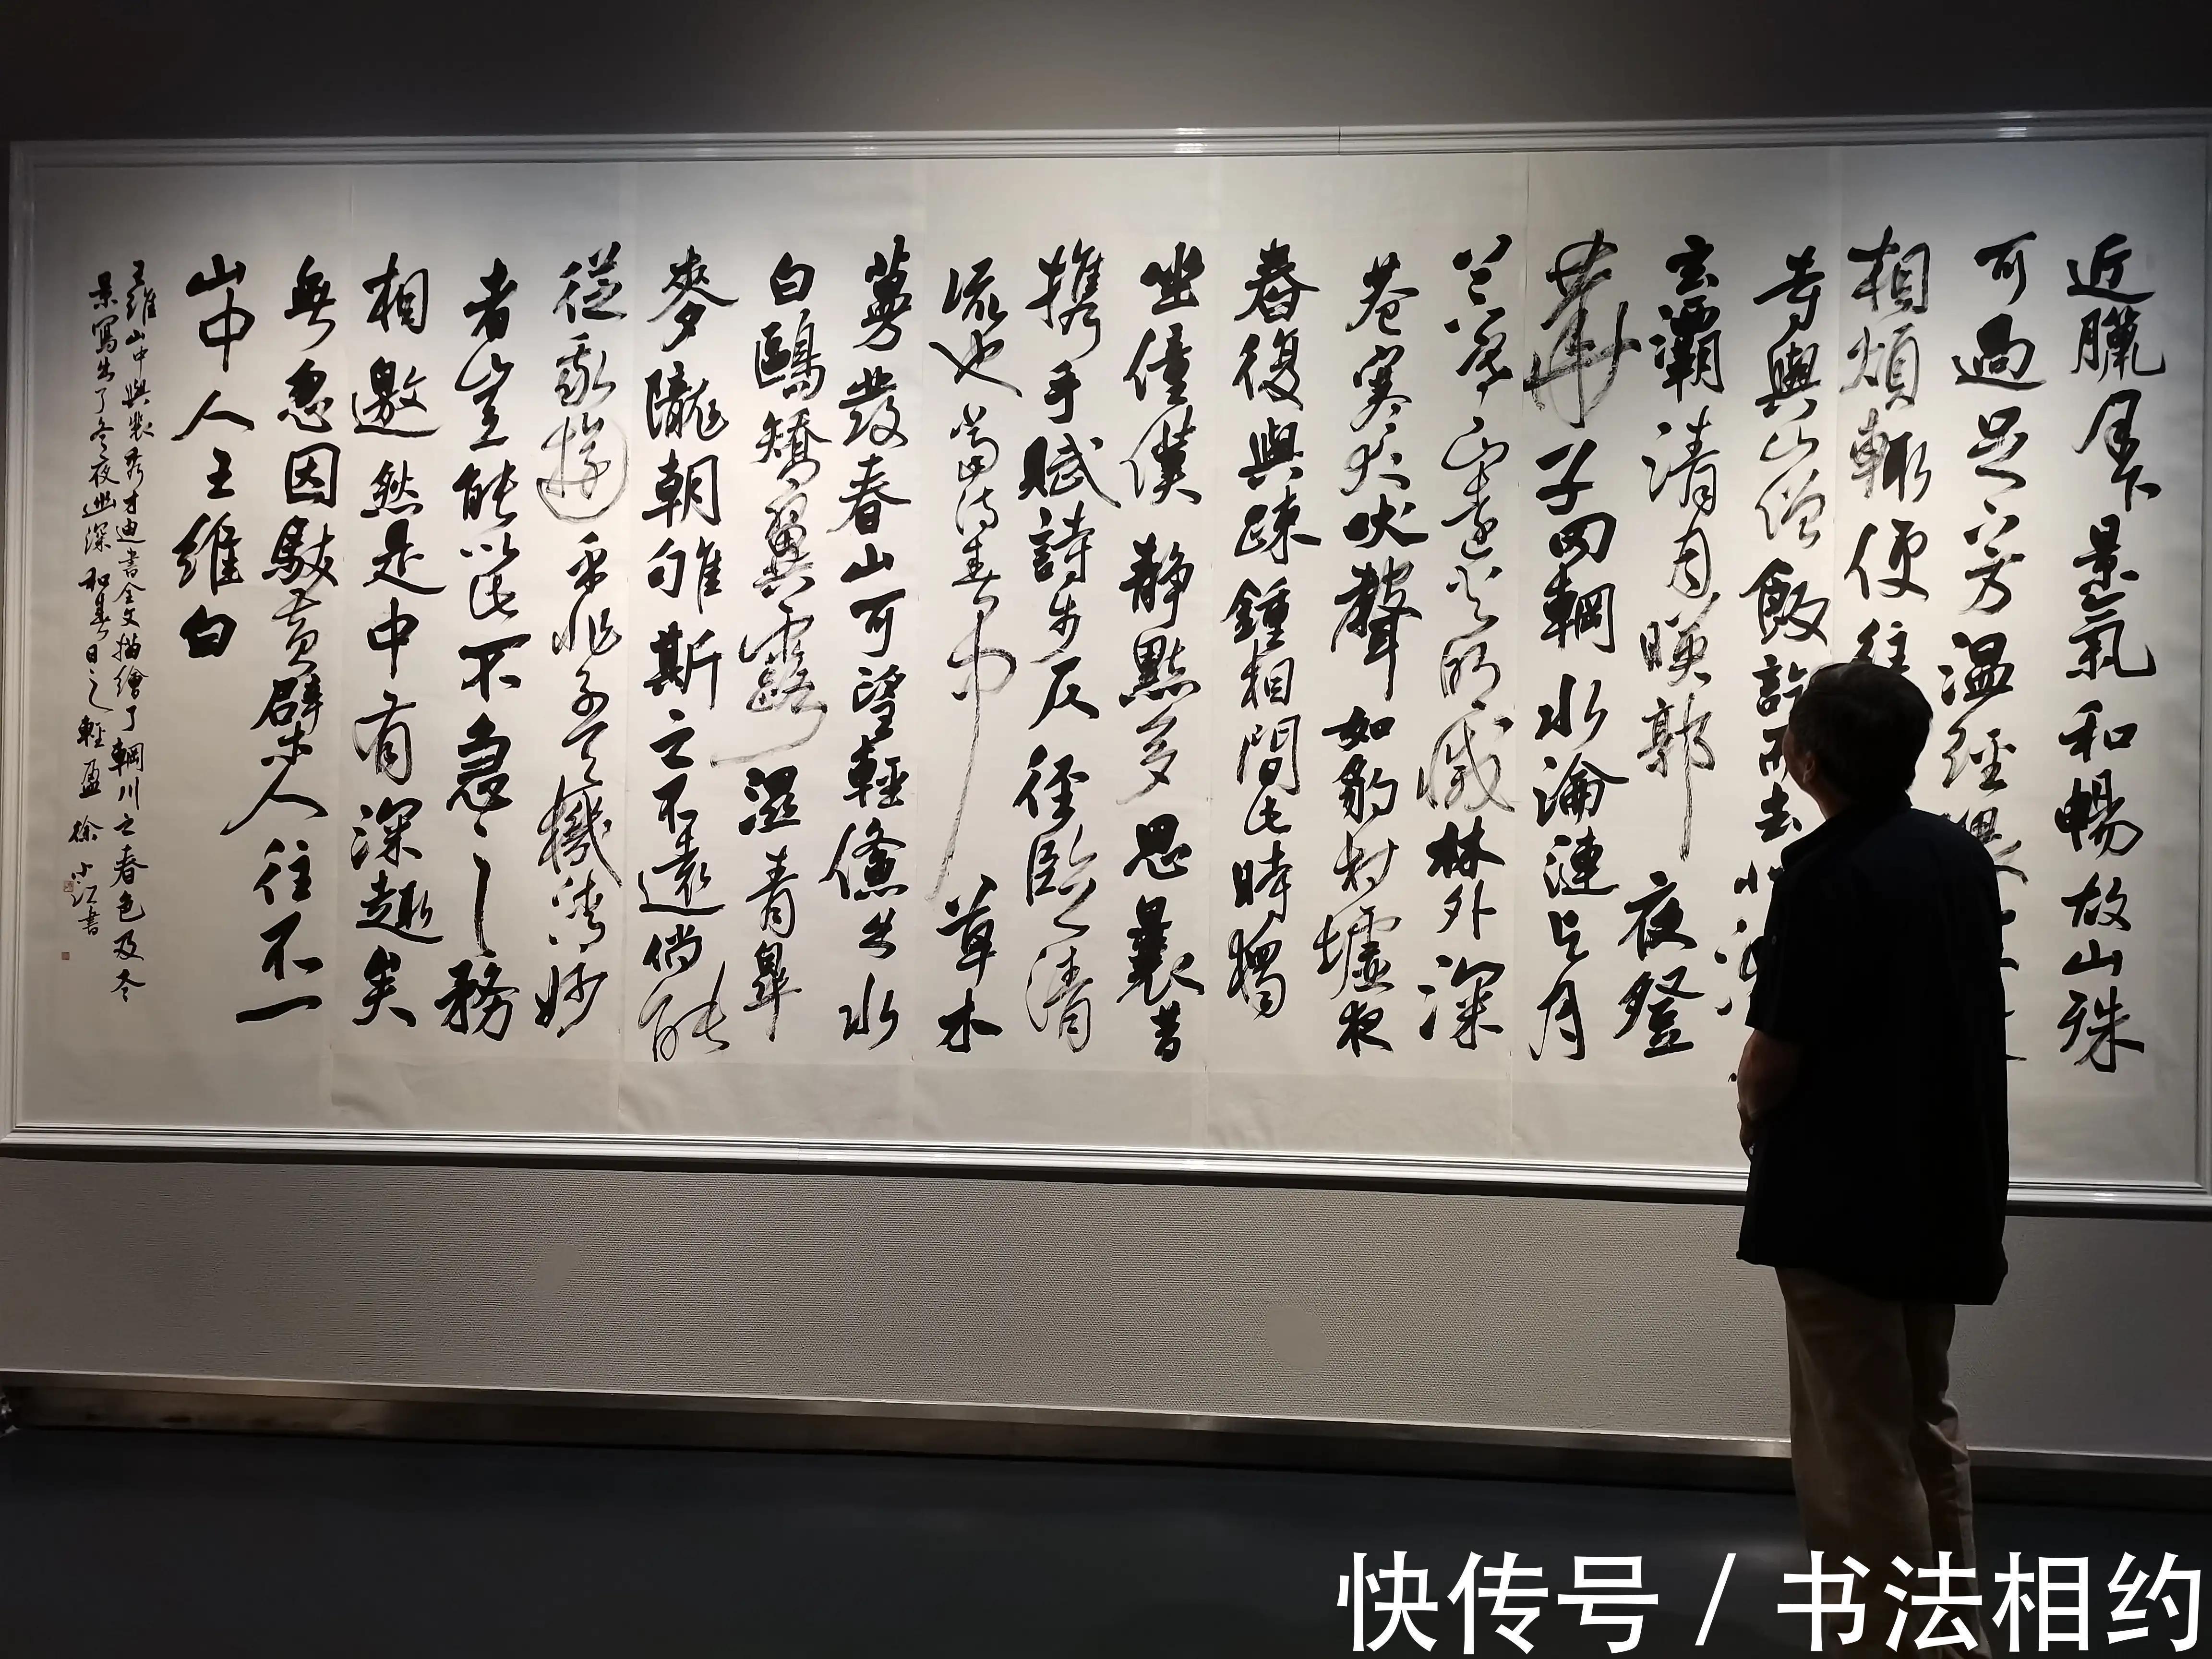 近臘月下景氣和暢故山殊
可過足下方温經猥
相煩輒便往
寺與山僧飯訖而去北涉
玄灞清月暎郭夜登
華子岡輞水淪漣與月
上下寒山遠火明滅林外深
巷寒犬吠聲如豹村墟夜
舂復與疎鍾相間此時獨
坐僮僕靜默多思曩昔
携手賦詩步仄徑臨清
流也當待春中草木
蔓發春山可望輕鯈出水
白鷗矯翼露濕青皋
麥隴朝雊斯之不遠倘能
從我遊乎非子天機清妙
者豈能以此不急之務
相邀然是中有深趣矣
無忽因馱黃檗人往不一
山中人王維白
王維山中與裴秀才迪書全文描繪了輞川之春色及冬
景寫出了冬夜幽深和春日之輕盈 徐小江書
快传号 / 书法相约